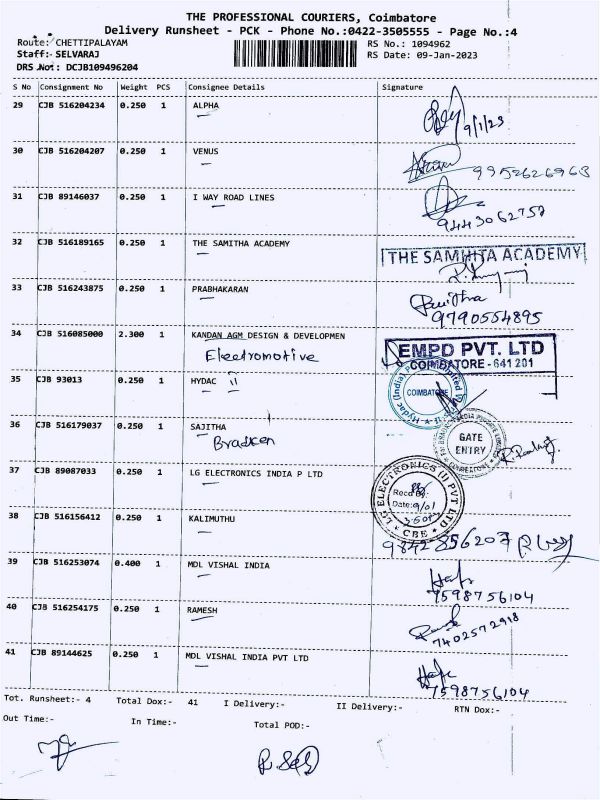 THE PROFESSIONAL COURIERS, Coimbatore
Delivery Runsheet - PCK - Phone No.:0422-3505555 - Page No.:4
Route: CHETTIPALAYAM RS No.: 1094962
Staff:- SELVARAJ RS Date: 09-Jan-2023
DRS No: DCJB109496204
S No Consignment No Weight PCS Consignee Details Signature
29 CJB 516204234 0.250 1 ALPHA
9/1/23
30 CJB 516204207 0.250 1 VENUS
9952626963
31 CJB 89146037 0.250 1 I WAY ROAD LINES
9443062757
32 CJB 516189165 0.250 1 THE SAMITHA ACADEMY THE SAMHITA ACADEMY
33 CJB 516243875 0.250 1 PRABHAKARAN
9790554895
34 CJB 516085000 2.300 1 KANDAN AGM DESIGN & DEVELOPMEN EMPD PVT. LTD
Electromotive COIMBATORE - 641 201
35 CJB 93013 0.250 1 HYDAC 11 COIMBATORE
36 CJB 516179037 0.250 1 SAJITHA
GATE
ENTRY
37 CJB 89087033 0.250 1 LG ELECTRONICS INDIA P LTD LG ELECTRONICS (I) PVT LTD
Recd By:
Date: 9/01
CBE
38 CJB 516156412 0.250 1 KALIMUTHU
9842856207
39 CJB 516253074 0.400 1 MDL VISHAL INDIA
7598756104
40 CJB 516254175 0.250 1 RAMESH
7402572918
41 CJB 89144625 0.250 1 MDL VISHAL INDIA PVT LTD
7598756104
Tot. Runsheet:- 4 Total Dox:- 41 I Delivery:- II Delivery:- RTN Dox:-
Out Time:- In Time:- Total POD:-